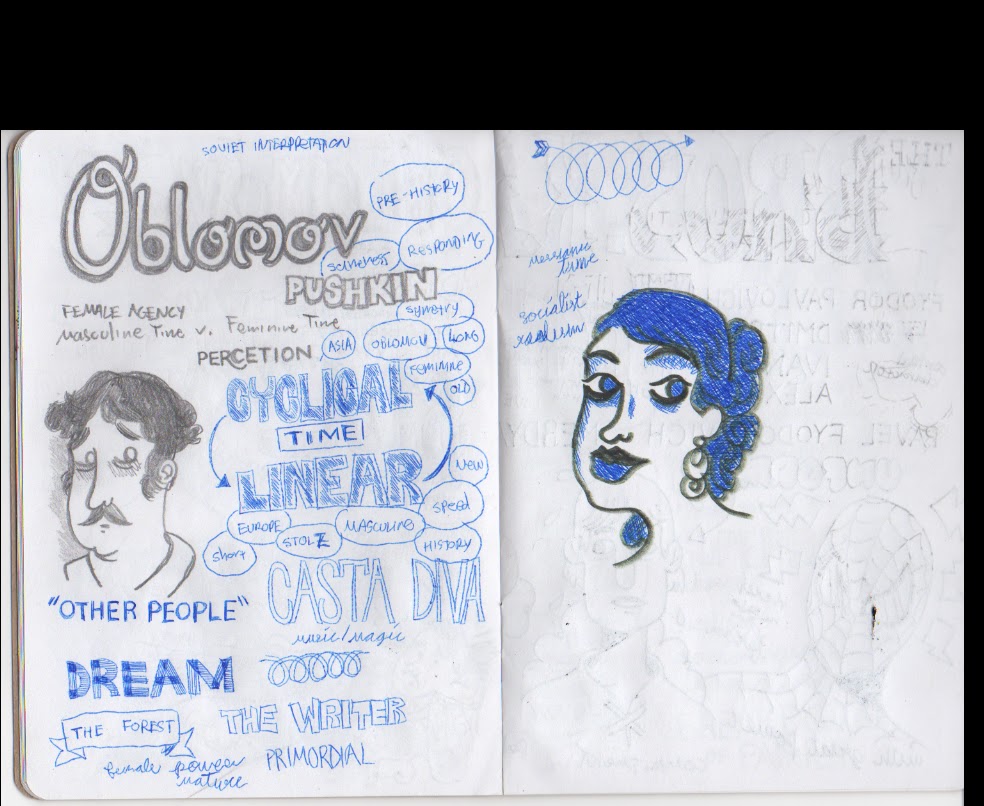 SOVIET INTERPRETATION
Oblomov
PRE-HISTORY
RESPONDING
sameness
PUSHKIN
FEMALE AGENCY
Masculine Time v. Feminine Time
symetry
PERCETION
ASIA
OBLOMOV
LONG
FEMININE
OLD
CYCLICAL
TIME
LINEAR
NEW
SPEED
EUROPE
STOLZ
MASCULINE
HISTORY
short
CASTA DIVA
music/magic
"OTHER PEOPLE"
DREAM
THE FOREST
THE WRITER
female power
nature
PRIMORDIAL
messianic
time
socialist
realism
FYODOR PAVLOVICH
DMITRI
IVAN
PAVEL FYODOROVICH